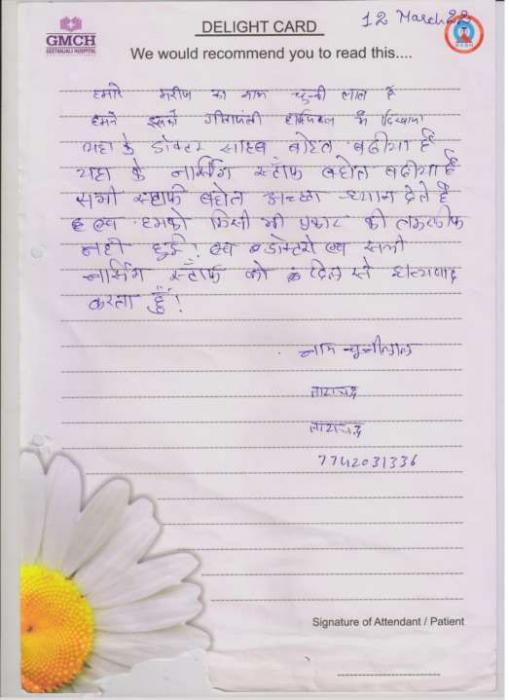 GMCH
GEETANJALI HOSPITAL
DELIGHT CARD
12 March 22
We would recommend you to read this....
हमारे मरीज का नाम चुन्नी लाल है
हमने इनको गीतांजली हॉस्पिटल में दिखाया
यहा के डॉक्टर साहब बोहत बढीया है
यहा के नर्सिंग स्टॉफ बहोत बढीया है
सभी स्टाफ बहोत अच्छा ध्यान देते है
एव हमको किसी भी प्रकार की तकलीफ
नही हुई। डॉक्टरो एव सभी
नर्सिंग स्टॉफ को दिल से धन्यवाद
करता हूँ।
नाम चुन्नीलाल
ताराचन्द
ताराचन्द
7742031336
Signature of Attendant / Patient